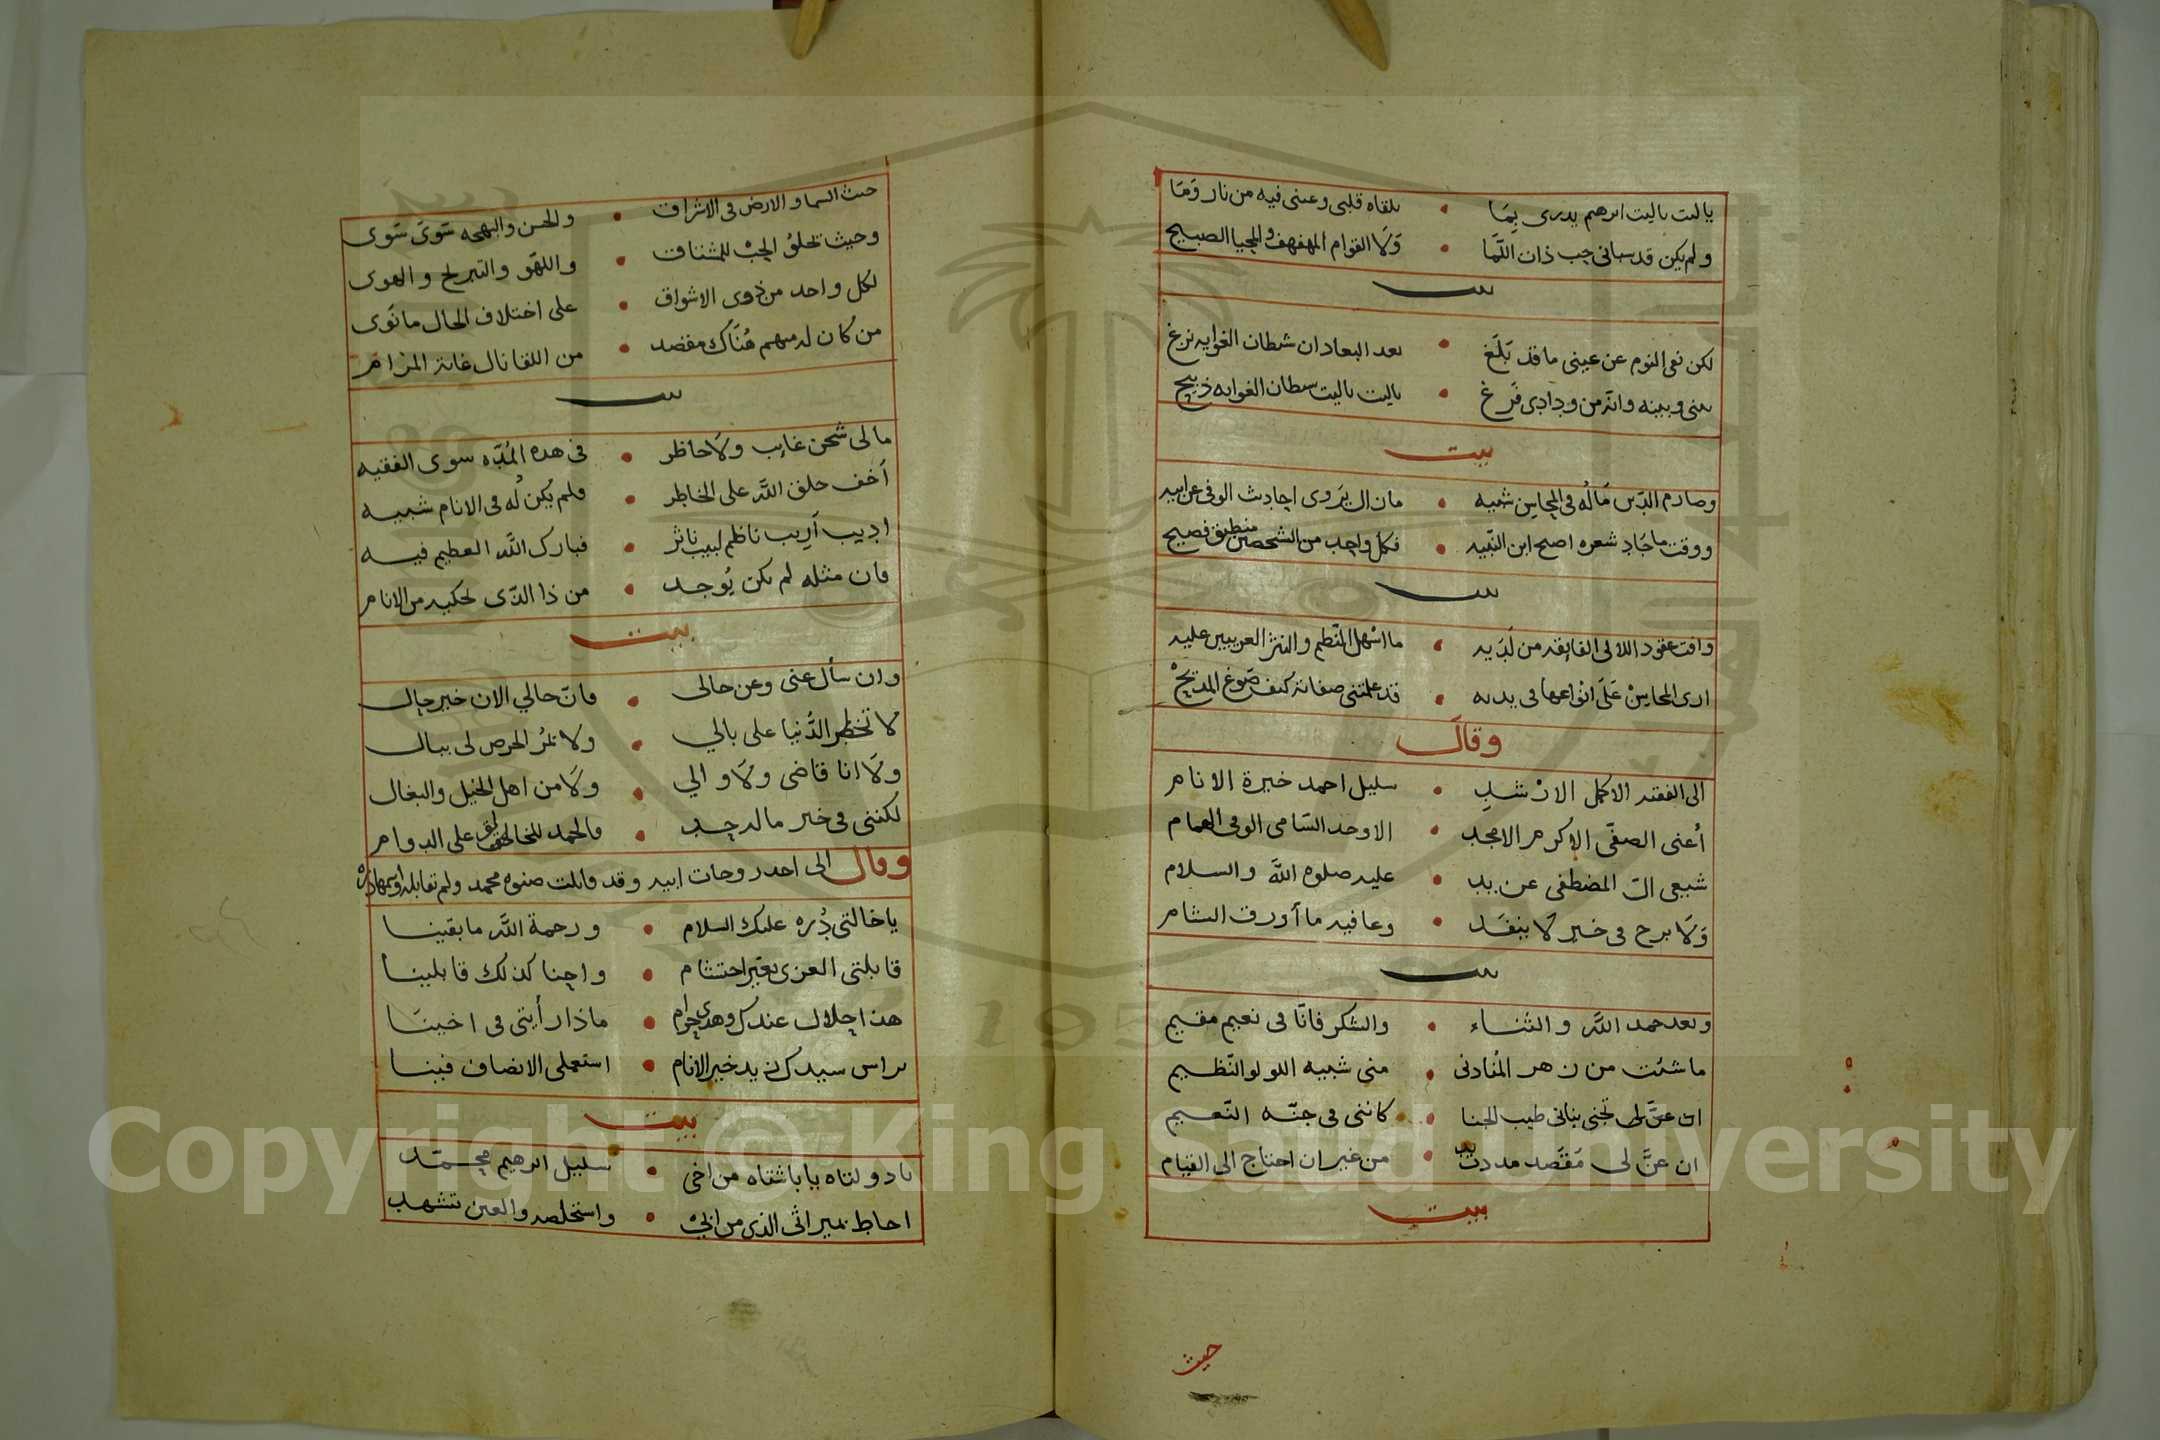 ياليت ياليت ابرهيم يدرى بِمَا • يلقاه قلبى وعينى فيه من نار وَمَا
ولم يكن قد سبانى حب ذات اللَّمَا • وَلَا القوام المهفهف والمحيا الصبيح
بيت
لكن نفى النوم عن عينى ما قد بَلَغ • بعد البعاد ان شطان الغوايه نزغ
بينى وبينه وانه من ودادى فَرَغ • ياليت ياليت سطان الغوايه ذبيح
بيت
وصارم الدين مَالُه فى المحاسن شبيه • مان ال يَروى احاديث الوفى عن ابيه
ووقت ما جَادِ شعره اصبح ابن النَّبيه • فكل واحد من الشخصين منطيق فصيح
بيت
وافت عقود اللالى الفايقه من لَدَيه • ما اسْهل النَّظم والنثر العربيين عليه
ارى المحاسِنْ عَلَى انْواعها فى يديه • قد علمتنى صفاته كيف صَوغ المديحْ
وقال
الى الفقيه الاكمل الارْشدِ • سليل احمد خيرة الانام
أعنى الصفّى الاكرم الامجد • الاوحد السّامى الوفى الهمام
شبيعى ال المصطفى عن يد • عليه صلوه اللَّه والسلام
وَلَا برح فى خيرٍ لَا ينفَد • وعافيه ما أورق الشام
بيت
وبعد حمد اللَّه والثناء • والشكر فانَّا فى نعيم مقيم
ما شئت من زهر المُنادنى • منى شبيه اللولو النّظيم
ان عنَّ لى تجنى بنانى طيب الجنا • كاننى فى جنّه النَّعيم
ان عنَّ لى مَقصد مددت يد • من غير ان احتاج الى القيام
بيت
حيث
حيث السما والارض فى الاشراق • والحسن والبهجه سَوىَ سَوى
وحيث تخلوُ الحِبْ للمشتاق • واللهَو والتبريح والهوى
لكل واحد من ذوى الاشواق • على اختلاف الحال ما نَوى
من كان له منهم هُنَاك مقصد • من اللقا نال غاية المرام
بيت
مالى شجن غايب وَلَا حاظر • فى هده المُدّه سوى الفقيه
أخف خلق اللَّه على الخاطر • ولم يُكن لُه فى الانام شبيه
اديب أريب ناظم لبيب ناثر • فبارك اللَّه العظيم فيه
فان مثله لم يكن يُوجد • من ذا الذّى يحكيه من الانام
بيت
وان سأل عنى وعن حالى • فانّ حالى الان خير حال
لا تخطر الدُّنيا على بالي • ولا يَمُرُ الحرص لى ببال
ولَا انا قاضى ولَا والي • وَلَا من اهل الخيل والبغال
لكننى فى خير ماله حد • والحمد للخالق على الدوام
وقال الى احد زوجات ابيه وقد قابلت صنوه محمد ولم تقابله او
ياخالتى دُره عليك السلام • ورحمة اللَّه ما بقينا
قابلتى العزى بغير احتشام • واحنا كذلك قابلينا
هذا حلال عندك وهدى حرام • ماذا رأيتى فى اخينَا
براس سيدك زيد خير الانام • استعملى الانصاف فينا
بيت
يادولتاه ياباشتاه من اخى • سليل ابرهيم محمّد
احاط بميراثى الذى من ابىْ • واستخلصه والعين تشهد